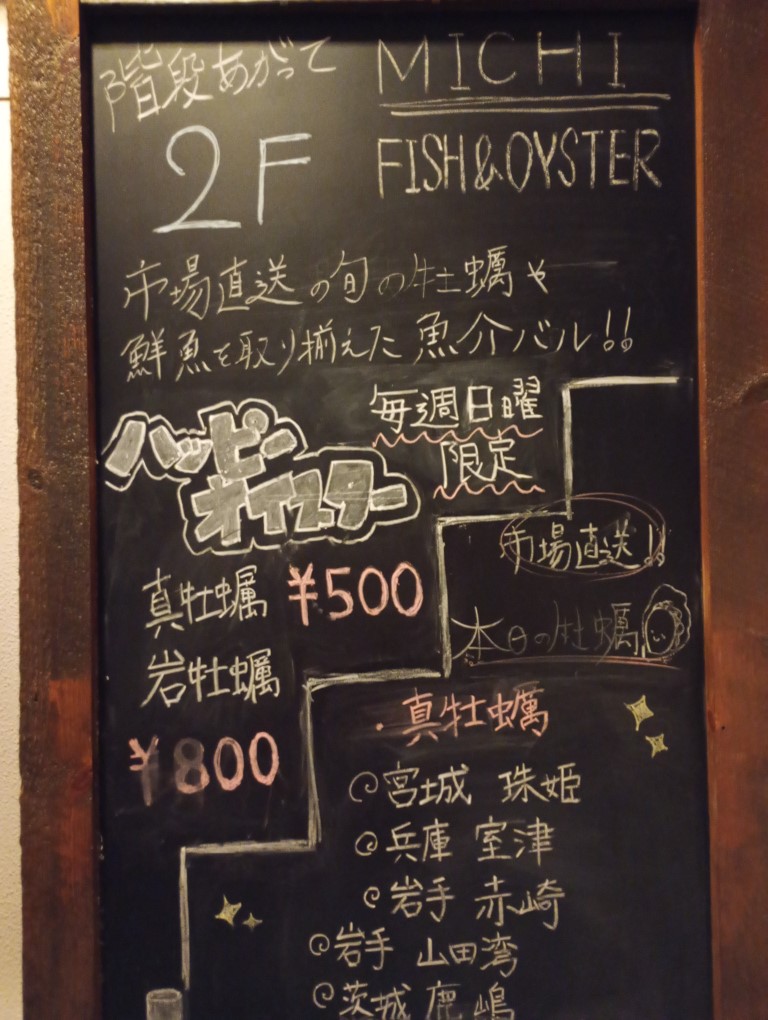 階段あがって
2F
MICHI
FISH&OYSTER
市場直送の旬の牡蠣や
鮮魚を取り揃えた魚介バル!!
ハッピー
オイスター
毎週日曜
限定
真牡蠣 ¥500
岩牡蠣
¥800
市場直送!!
本日の牡蠣
・真牡蠣
宮城 珠姫
兵庫 室津
岩手 赤崎
岩手 山田湾
茨城 鹿嶋